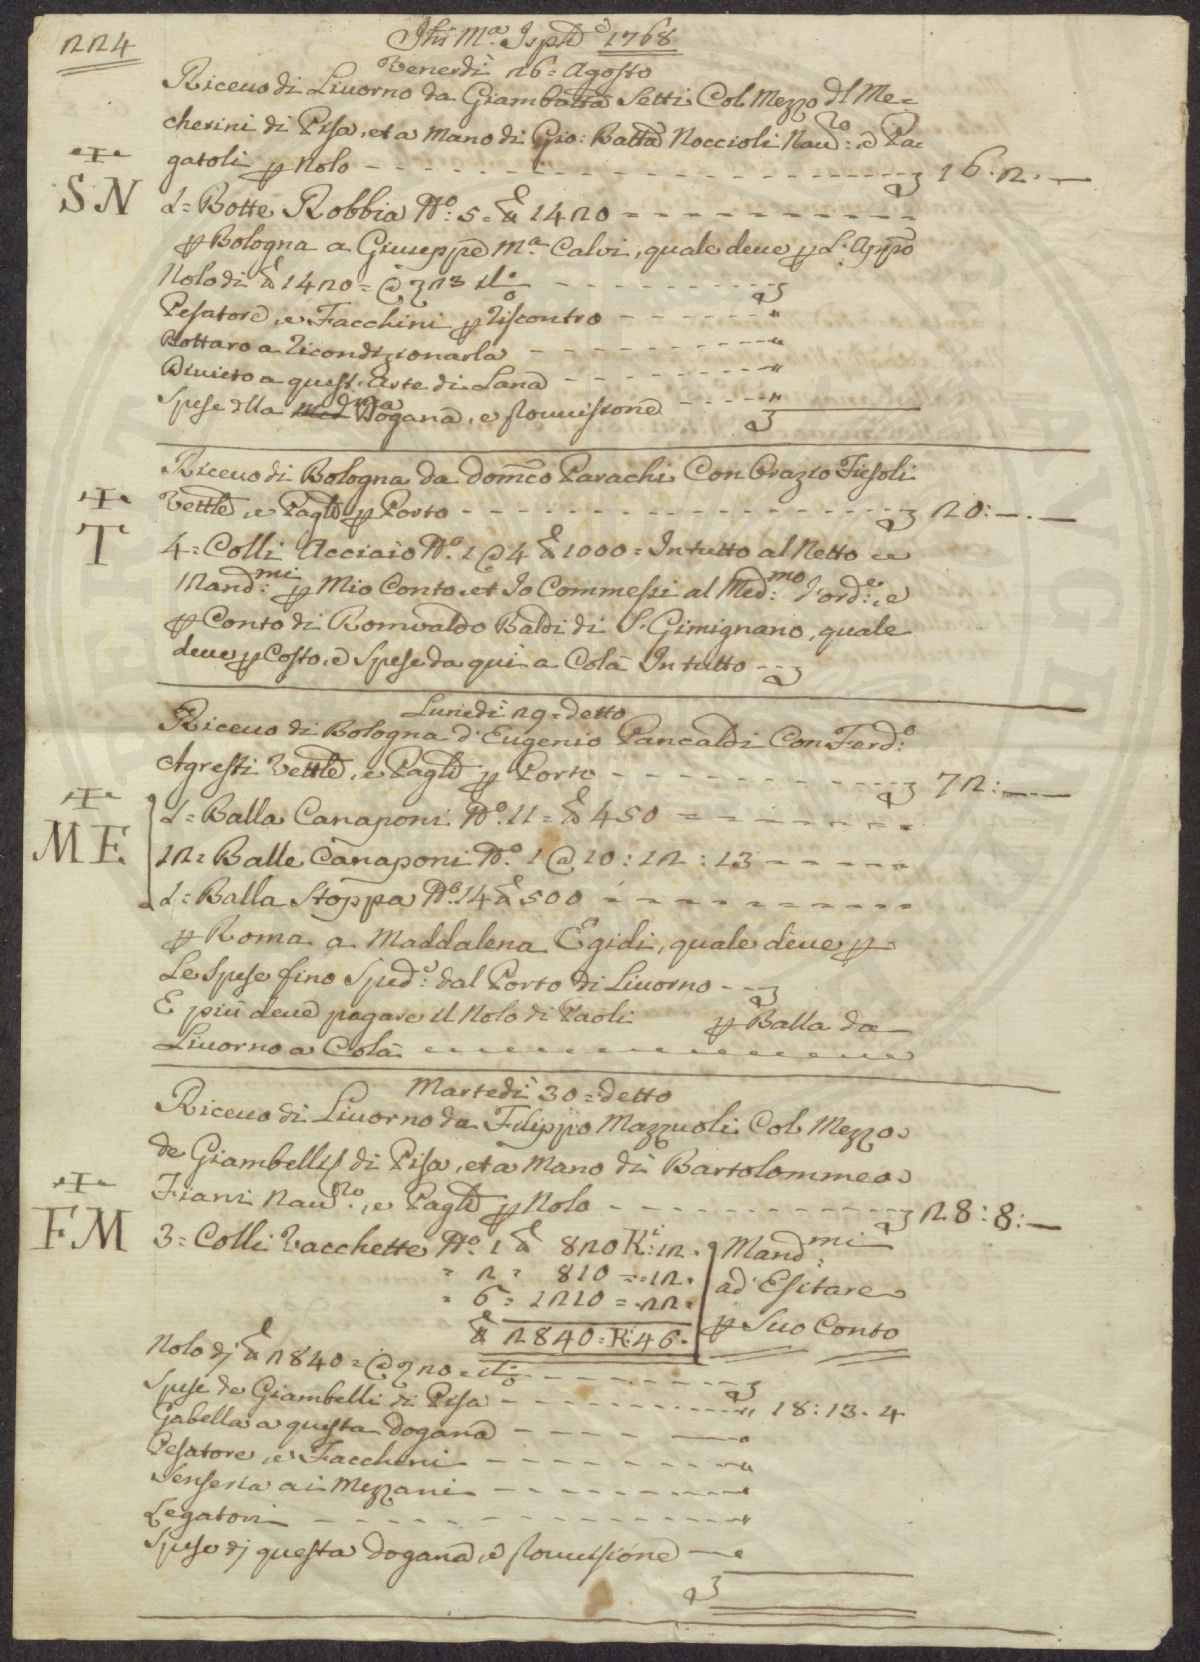 224
Jhs Mª Jsphe 1768
Venerdì 26= Agosto
Riceuo di Liuorno da Giambatta Setti Col Mezzo dl Me=
cherini di Pisa, et a Mano di Gio: Batta Noccioli Nauro: e Pa
gatoli p Nolo 16.2.—
SN
1= Botte Robbia No: 5= lb 1420
p Bologna a Giuseppe Mª Calvi, quale deue p L'Appo
Nolo di lb 1420= @ 23 il
Pesatore, e Facchini p riscontro
Bottaro a ricondizionarla
Diuieto a quest: Arte di Lana
Spese dlla diga Dogana, e prouuisione
Riceuo di Bologna da Domco Parachi Con Orazio Fiesoli
Vettle, e Pagli p Porto 20:—.—
T
4= Colli Acciaio No. 1 @ 4 lb 1000= In tutto al Netto e
Mandmi: p Mio Conto, et Jo Commessi al Medmo: d'orde:, e
p Conto di Romualdo Baldi di S. Gimignano, quale
deue p Costo, e Spese da qui a Colà In tutto
Lunedì 29= detto
Riceuo di Bologna d'Eugenio Pancaldi Con Ferdo:
Agresti Vettle, e Pagli p Porto 72:—.—
ME
1= Balla Canaponi No. 11= lb 450
12= Balle Canaponi No. 1 @ 10: 12: 13
1= Balla Stoppa No. 14 lb 500
p Roma a Maddalena Egidi, quale deue p
Le Spese fino Spede: dal Porto di Liuorno
E più deue pagare il Nolo di Paoli p Balla da
Liuorno a Colà
Martedì 30= detto
Riceuo di Liuorno da Filippo Mazzuoli Col Mezzo
de Giambelli di Pisa, et a Mano di Bartolommeo
Fiarvi Nauro., e Pagli p Nolo 28:8:—
FM
3= Colli Vacchette No. 1 lb 820 Ri:12. Mandmi:
= 2 = 810 =..12. ad Esitare
= 6 = 1210 =..22= p Suo Conto
lb 2840= R:46.
Nolo dj lb 2840= @ 20= il
Spese de Giambelli di Pisa 18:13.4
Gabella a questa Dogana
Pesatore, e Facchini
Senseria ai Mezzani
Legatori
Spese dj questa Dogana, e prouuisione